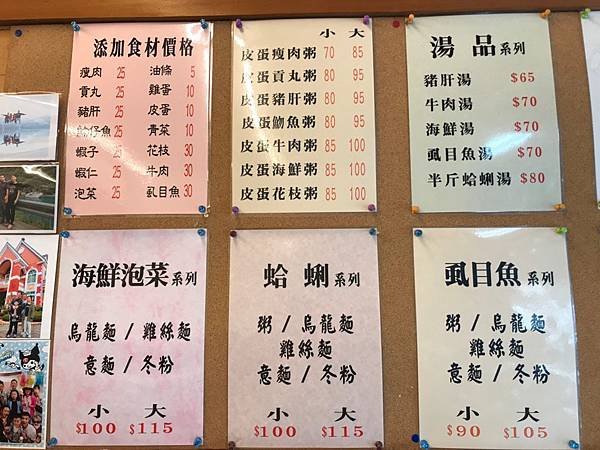 添加食材價格
瘦肉 25 油條 5
貢丸 25 雞蛋 10
豬肝 25 皮蛋 10
魩仔魚 25 青菜 10
蝦子 25 花枝 30
蝦仁 25 牛肉 30
泡菜 25 虱目魚 30
小 大
皮蛋瘦肉粥 70 85
皮蛋貢丸粥 80 95
皮蛋豬肝粥 80 95
皮蛋魩魚粥 80 95
皮蛋牛肉粥 85 100
皮蛋海鮮粥 85 100
皮蛋花枝粥 85 100
湯品系列
豬肝湯 $65
牛肉湯 $70
海鮮湯 $70
虱目魚湯 $70
半斤蛤蜊湯 $80
海鮮泡菜系列
烏龍麵 / 雞絲麵
意麵 / 冬粉
小 大
$100 $115
蛤蜊系列
粥 / 烏龍麵
雞絲麵
意麵 / 冬粉
小 大
$100 $115
虱目魚系列
粥 / 烏龍麵
雞絲麵
意麵 / 冬粉
小 大
$90 $105